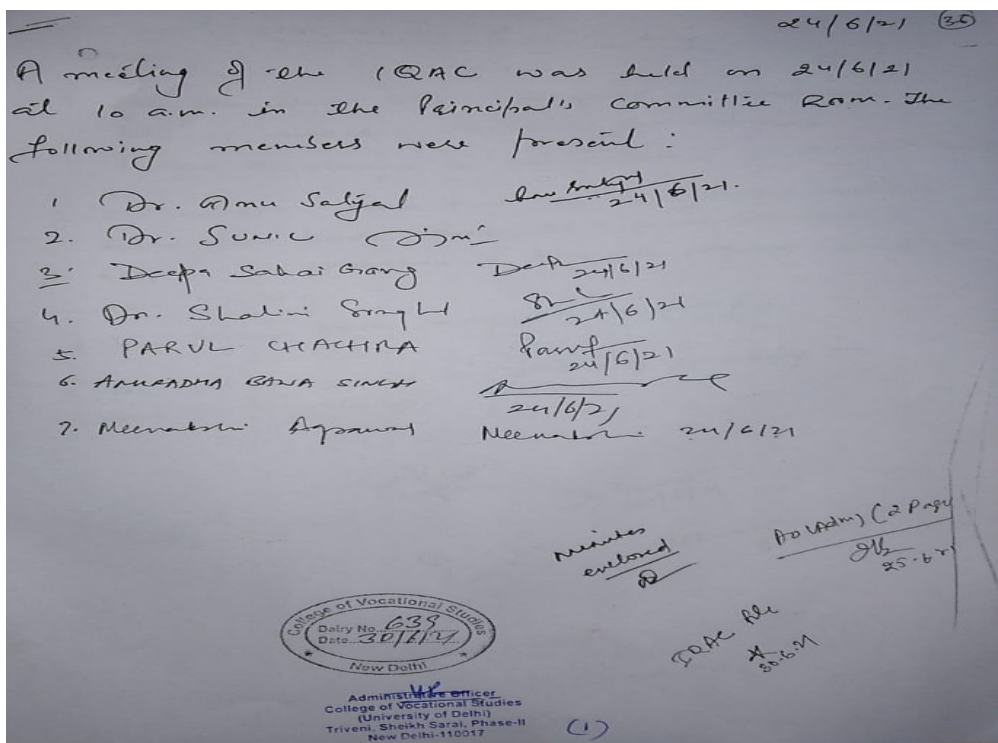 24/6/21 (35)
A meeting of the IQAC was held on 24/6/21
at 10 a.m. in the Principal's Committee Room. The
following members were present :
1 Dr. Satyal 24/6/21.
2. Dr. SUNIL
3. Deepa Sahai Garg Deepa 24/6/21
4. Dr. Shalini Singh 24/6/21
5. PARUL CHACHRA Parul 24/6/21
6. ANURADHA BANA SINGH 24/6/21
7. Meenakshi Agrawal Meenakshi 24/6/21
Minutes enclosed
AO (Adm) (2 Page
25.6.21
IQAC File
30.6.21
College of Vocational Studies
Dairy No. 639
Date 30/6/21
New Delhi
Administrative Officer
College of Vocational Studies
(University of Delhi)
Triveni, Sheikh Sarai, Phase-II
New Delhi-110017
(1)